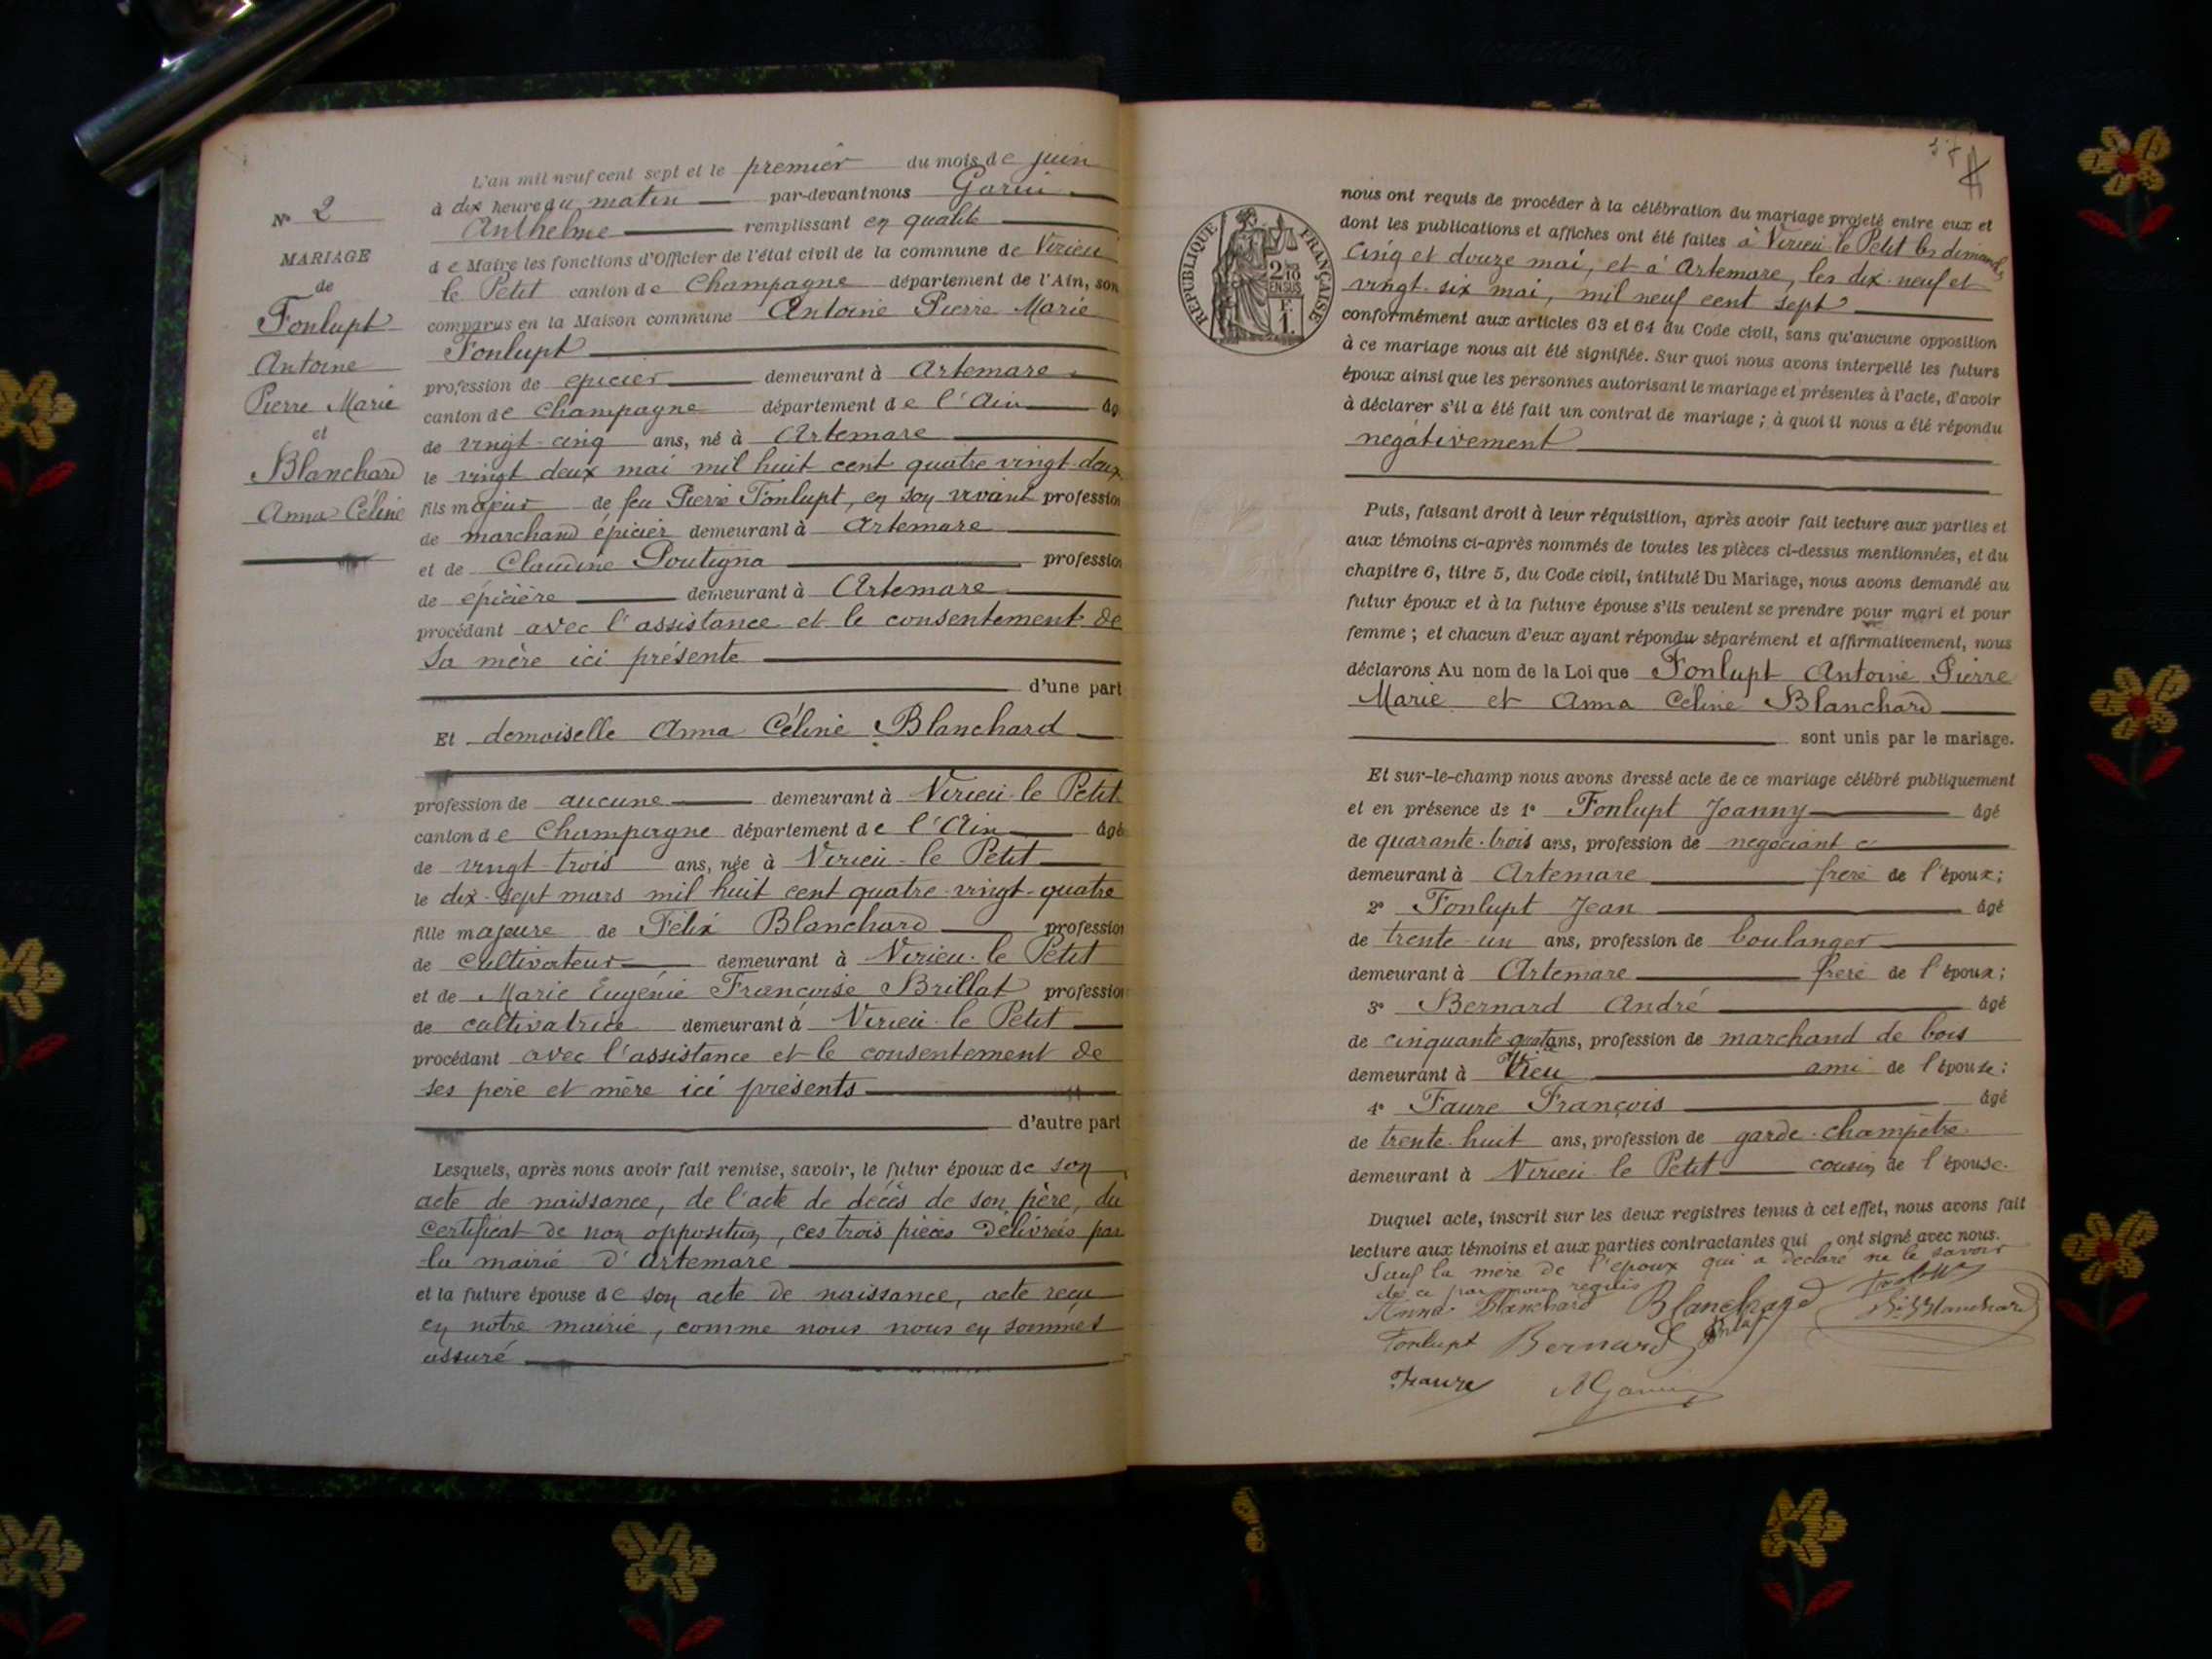 N° 2
MARIAGE
de
Fonlupt
Antoine
Pierre Marie
et
Blanchard
Anna Céline
L'an mil neuf cent sept et le premier du mois de juin
à dix heure du matin par-devant nous Garin
Anthelme remplissant en qualité
de Maire les fonctions d'Officier de l'état civil de la commune de Virieu
le Petit canton de Champagne département de l'Ain, son
comparus en la Maison commune Antoine Pierre Marie
Fonlupt
profession de epicier demeurant à Artemare
canton de Champagne département de l'Ain âg
de vingt-cinq ans, né à Artemare
le vingt deux mai mil huit cent quatre vingt-deux
fils majeur de feu Pierre Fonlupt, en son vivant profession
de marchand épicier demeurant à Artemare
et de Claudine Poutigna profession
de épicière demeurant à Artemare
procédant avec l'assistance et le consentement de
sa mère ici présente
d'une part
Et demoiselle Anna Céline Blanchard
profession de aucune demeurant à Virieu-le Petit
canton de Champagne département de l'Ain âgé
de vingt-trois ans, née à Virieu-le Petit
le dix-sept mars mil huit cent quatre-vingt-quatre
fille majeure de Félix Blanchard profession
de cultivateur demeurant à Virieu-le Petit
et de Marie Eugénie Françoise Brillat profession
de cultivatrice demeurant à Virieu-le Petit
procédant avec l'assistance et le consentement de
ses père et mère ici présents
d'autre part
Lesquels, après nous avoir fait remise, savoir, le futur époux de son
acte de naissance, de l'acte de décès de son père, du
certificat de non opposition, ces trois pièces délivrées par
la mairie d'Artemare
et la future épouse de son acte de naissance, acte reçu
en notre mairie, comme nous nous en sommes
assuré
RÉPUBLIQUE FRANÇAISE
2/10
EN SUS
F.
1.
nous ont requis de procéder à la célébration du mariage projeté entre eux et
dont les publications et affiches ont été faites à Virieu-le Petit les dimanches
cinq et douze mai, et à Artemare, les dix-neuf et
vingt-six mai, mil neuf cent sept
conformément aux articles 63 et 64 du Code civil, sans qu'aucune opposition
à ce mariage nous ait été signifiée. Sur quoi nous avons interpellé les futurs
époux ainsi que les personnes autorisant le mariage et présentes à l'acte, d'avoir
à déclarer s'il a été fait un contrat de mariage ; à quoi il nous a été répondu
negativement
Puis, faisant droit à leur réquisition, après avoir fait lecture aux parties et
aux témoins ci-après nommés de toutes les pièces ci-dessus mentionnées, et du
chapitre 6, titre 5, du Code civil, intitulé Du Mariage, nous avons demandé au
futur époux et à la future épouse s'ils veulent se prendre pour mari et pour
femme ; et chacun d'eux ayant répondu séparément et affirmativement, nous
déclarons Au nom de la Loi que Fonlupt Antoine Pierre
Marie et Anna Céline Blanchard
sont unis par le mariage.
Et sur-le-champ nous avons dressé acte de ce mariage célébré publiquement
et en présence de 1° Fonlupt Joanny âgé
de quarante-trois ans, profession de negociant
demeurant à Artemare frère de l'époux;
2° Fonlupt Jean âgé
de trente-un ans, profession de boulanger
demeurant à Artemare frère de l'époux;
3° Bernard André âgé
de cinquante ans, profession de marchand de bois
demeurant à Vieu ami de l'épouse;
4° Faure François âgé
de trente-huit ans, profession de garde-champêtre
demeurant à Virieu-le Petit cousin de l'épouse.
Duquel acte, inscrit sur les deux registres tenus à cet effet, nous avons fait
lecture aux témoins et aux parties contractantes qui ont signé avec nous.
Sauf la mère de l'époux qui a déclaré ne le savoir
de ce par nous requis
Anna Blanchard Blanchard Blanchard
Fonlupt Bernard
Faure AGarin